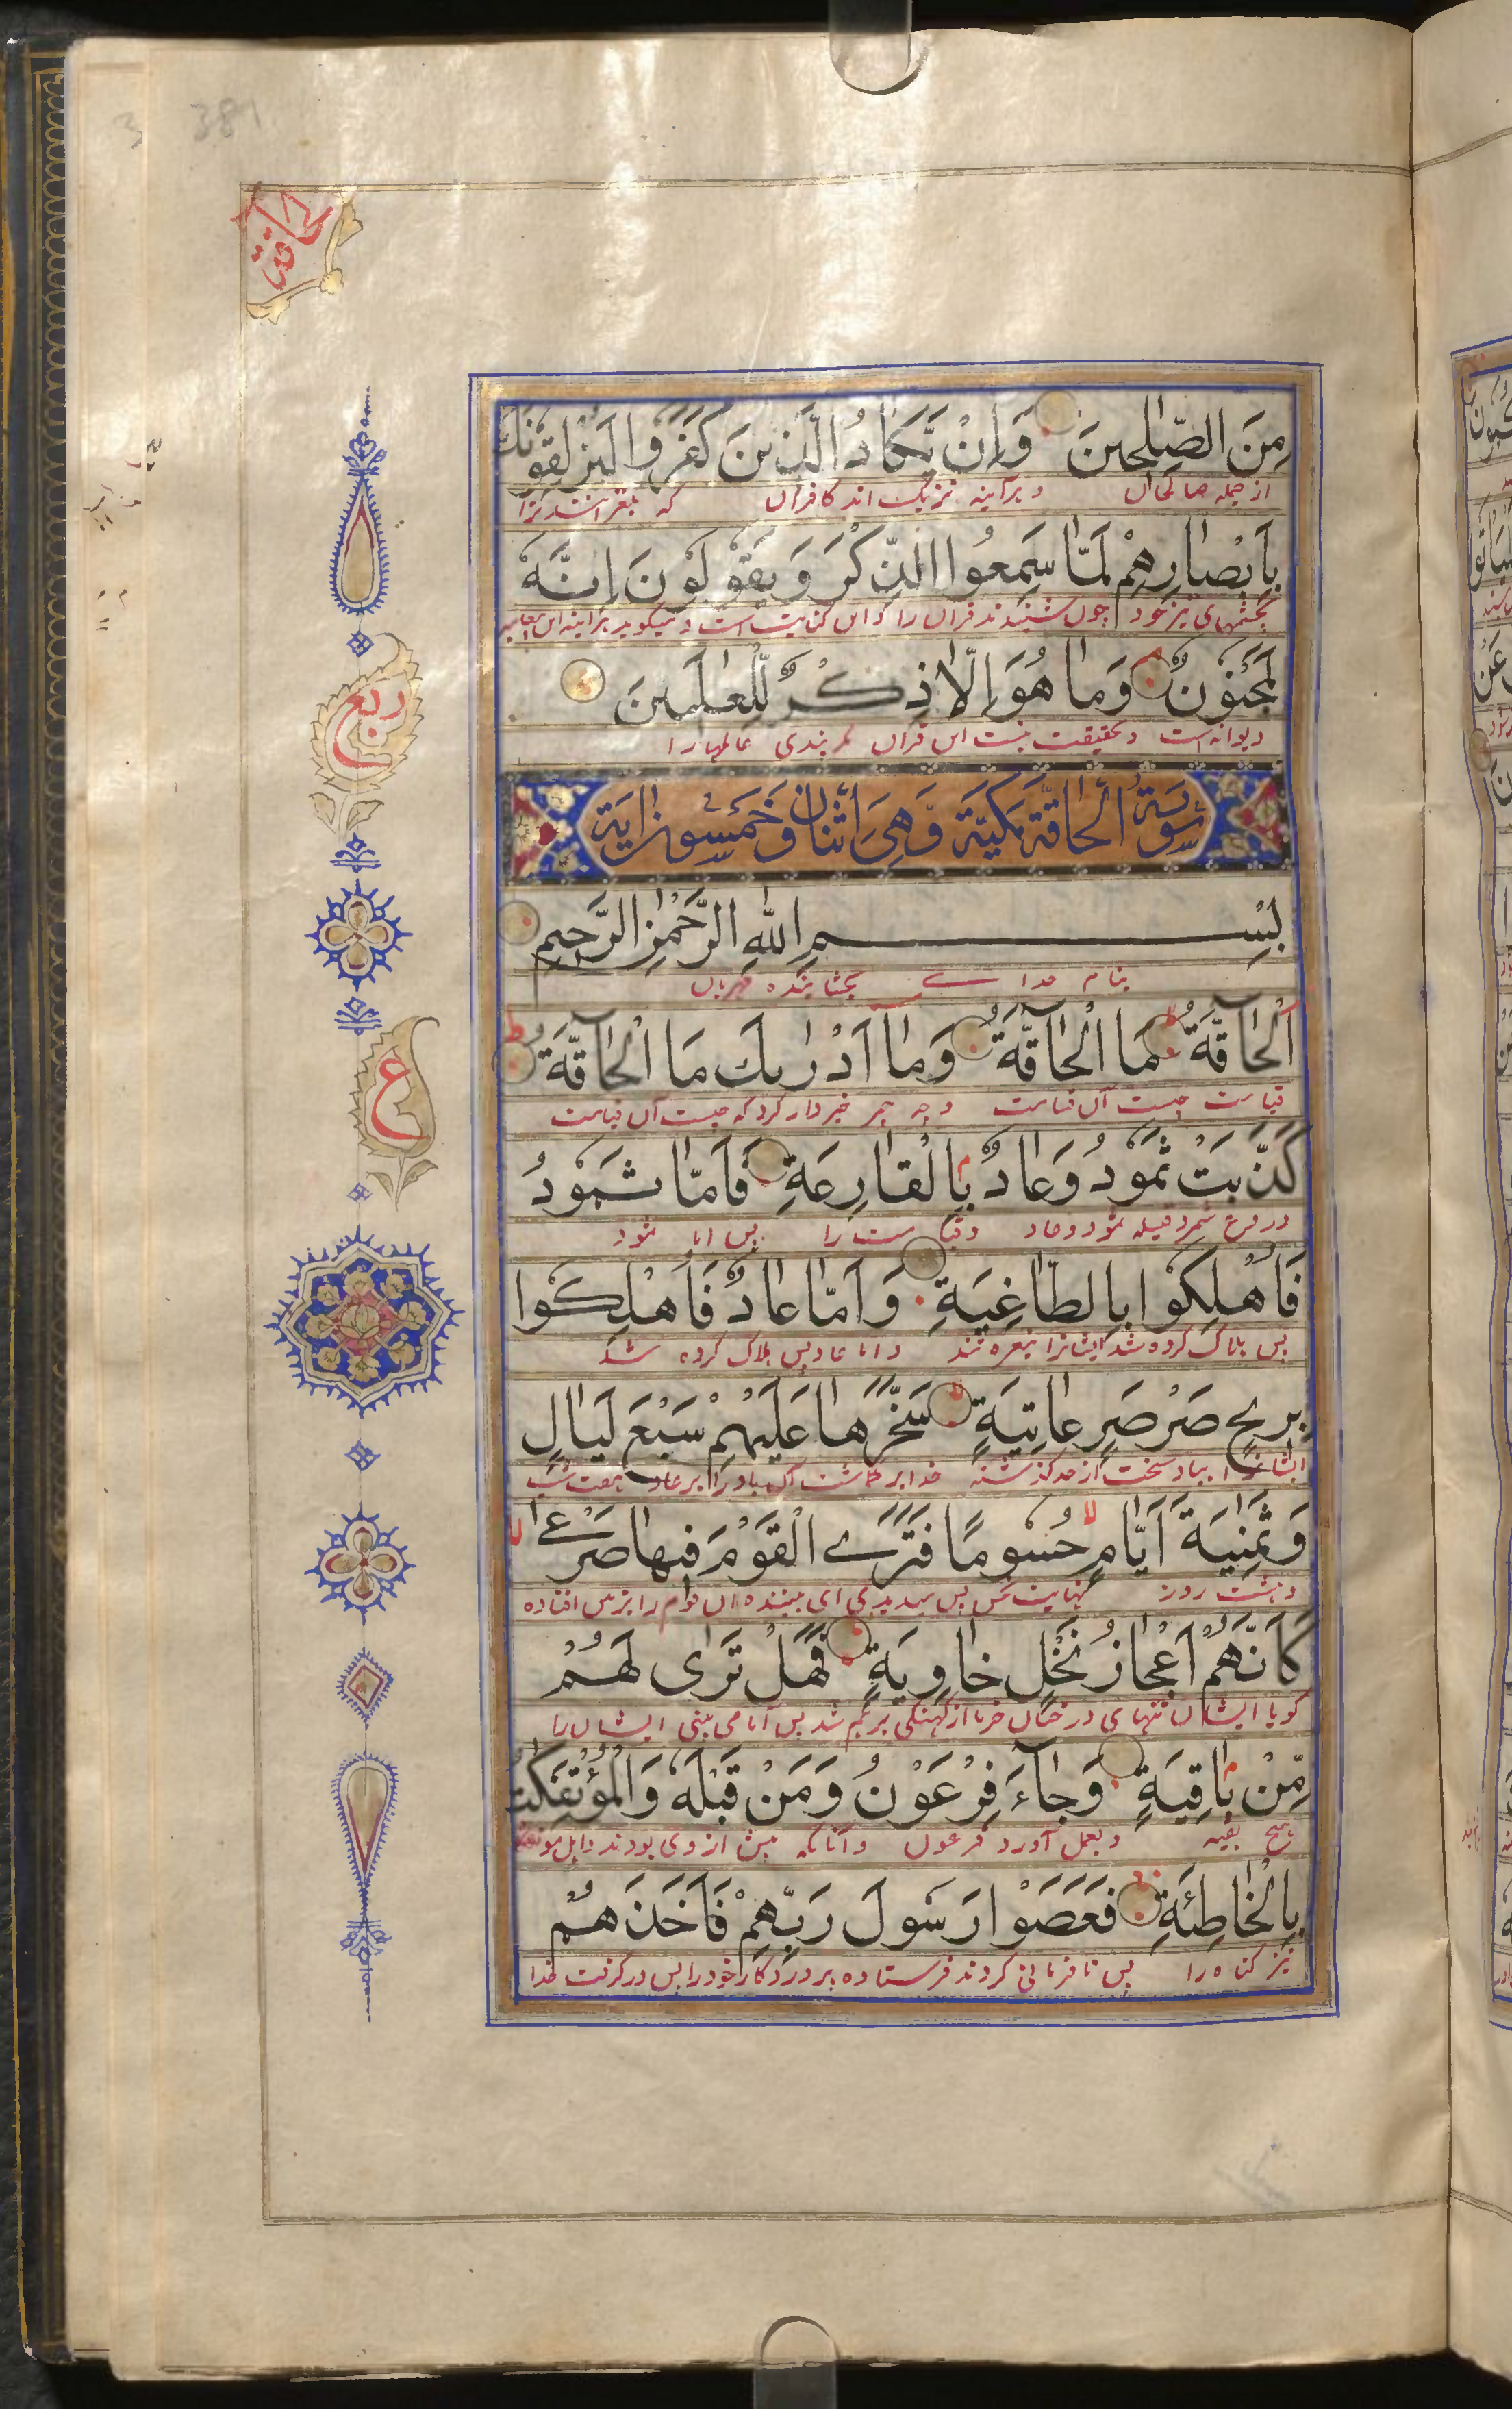 381
الحاقة
مِنَ الصّٰلِحِينَ وَاِنْ يَّكَادُ الَّذِينَ كَفَرُوا لَيُزْلِقُونَكَ
از جمله صالحان و هرآینه نزدیک اند کافران که بلغزانند ترا
بِاَبْصَارِهِمْ لَمَّا سَمِعُوا الذِّكْرَ وَيَقُولُونَ اِنَّهُ
بچشمهای تیز خود چون شنیدند قران را
لَمَجْنُونٌ وَمَا هُوَ اِلَّا ذِكْرٌ لِّلْعٰلَمِينَ
دیوانه است و بحقیقت نیست این قران مگر پندی عالمها را
ربع
سُورَةُ الْحَاقَّةِ مَكِّيَّة وَّهِىَ اَثْنَانِ وَخَمْسُونَ اٰيَة
بِسْمِ اللّٰهِ الرَّحْمٰنِ الرَّحِيمِ
بنام خدا ے بخشاینده مهربان
اَلْحَاقَّةُ مَا الْحَاقَّةُ وَمَا اَدْرٰىكَ مَا الْحَاقَّةُ
قیامت چیست آن قیامت و چه چیز خبردار کرد که چیست آن قیامت
ع
كَذَّبَتْ ثَمُودُ وَعَادٌ بِالْقَارِعَةِ فَاَمَّا ثَمُودُ
دروغ شمرد قبیله ثمود و عاد قیامت را پس اما ثمود
فَاُهْلِكُوا بِالطَّاغِيَةِ وَاَمَّا عَادٌ فَاُهْلِكُوا
پس هلاک کرده شد ایشانرا بنعره تند و اما عاد پس هلاک کرده شد
بِرِيحٍ صَرْصَرٍ عَاتِيَةٍ سَخَّرَهَا عَلَيْهِمْ سَبْعَ لَيَالٍ
ایشانرا بباد سخت از حد گذشته خدا برگماشت آن باد را بر عاد هفت شب
وَثَمٰنِيَةَ اَيَّامٍ حُسُومًا فَتَرَے الْقَوْمَ فِيهَا صَرْعٰے
و هشت روز پس میدیدی ای بیننده آن قوم را بر زمین افتاده
كَاَنَّهُمْ اَعْجَازُ نَخْلٍ خَاوِيَةٍ فَهَلْ تَرٰى لَهُمْ
گویا ایشان تنهای درختان خرما از کهنگی پس آیا می بینی ایشان را
مِّنْ بَاقِيَةٍ وَجَآءَ فِرْعَوْنُ وَمَنْ قَبْلَهُ وَالْمُؤْتَفِكٰتُ
هیچ بقیه و بعمل آورد فرعون و آنانکه پیش از وی بودند
بِالْخَاطِئَةِ فَعَصَوْا رَسُولَ رَبِّهِمْ فَاَخَذَهُمْ
نیز گناه را پس نافرمانی کردند فرستاده پروردگار خود را پس درگرفت خدا